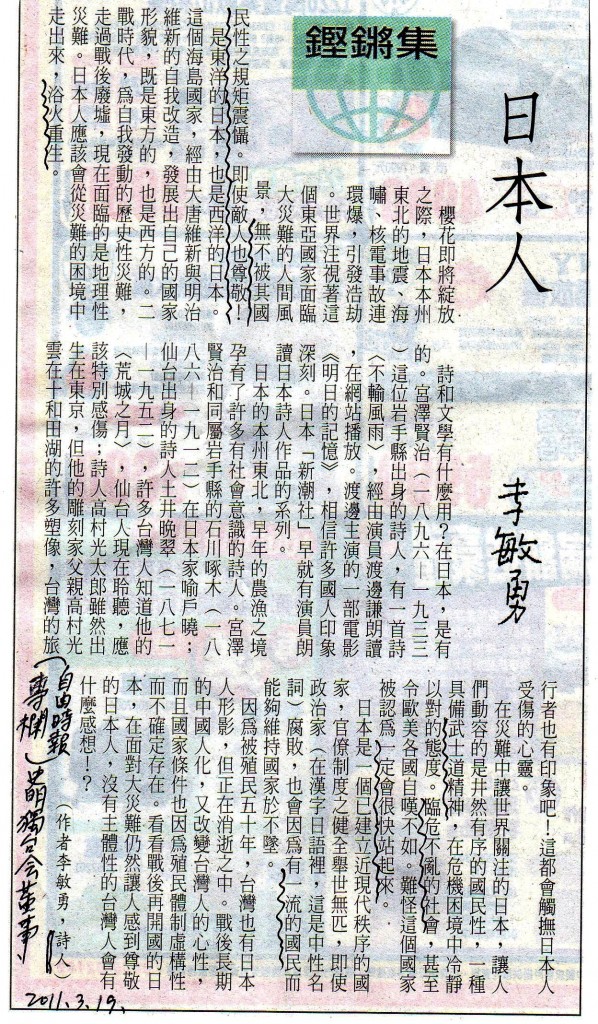 鏗鏘集
日本人
李敏勇
櫻花即將綻放
之際,日本本州
東北的地震、海
嘯、核電事故連
環爆,引發浩劫
。世界注視著這
個東亞國家面臨
大災難的人間風
景,無不被其國
民性之規矩震懾。即使敵人也尊敬!
是東洋的日本,也是西洋的日本。
這個海島國家,經由大唐維新與明治
維新的自我改造,發展出自己的國家
形貌,既是東方的,也是西方的。二
戰時代,為自我發動的歷史性災難,
走過戰後廢墟,現在面臨的是地理性
災難。日本人應該會從災難的困境中
走出來,浴火重生。
詩和文學有什麼用?在日本,是有
的。宮澤賢治(一八九六—一九三三
)這位岩手縣出身的詩人,有一首詩
〈不輸風雨〉,經由演員渡邊謙朗讀
,在網站播放。渡邊主演的一部電影
《明日的記憶》,相信許多國人印象
深刻。日本「新潮社」早就有演員朗
讀日本詩人作品的系列。
日本的本州東北,早年的農漁之境
孕有了許多有社會意識的詩人。宮澤
賢治和同屬岩手縣的石川啄木(一八
八六—一九一二)在日本家喻戶曉;
仙台出身的詩人土井晚翠(一八七一
—一九五二),許多台灣人知道他的
〈荒城之月〉,仙台人現在聆聽,應
該特別感傷;詩人高村光太郎雖然出
生在東京,但他的雕刻家父親高村光
雲在十和田湖的許多塑像,台灣的旅
行者也有印象吧!這都會觸撫日本人
受傷的心靈。
在災難中讓世界關注的日本,讓人
們動容的是井然有序的國民性,一種
具備武士道精神,在危機困境中冷靜
以對的態度。臨危不亂的社會,甚至
令歐美各國自嘆不如。難怪這個國家
被認為一定會很快站起來。
日本是一個已建立近現代秩序的國
家,官僚制度之健全舉世無匹,即使
政治家(在漢字日語裡,這是中性名
詞)腐敗,也會因為有一流的國民而
能夠維持國家於不墜。
因為被殖民五十年,台灣也有日本
人形影,但正在消逝之中。戰後長期
的中國人化,又改變台灣人的心性,
而且國家條件也因為殖民體制虛構性
而不確定存在。看看戰後再開國的日
本,在面對大災難仍然讓人感到尊敬
的日本人,沒有主體性的台灣人會有
什麼感想!?
(作者李敏勇,詩人)
(自由時報
專欄)
前獨台会董事
2011.3.19.